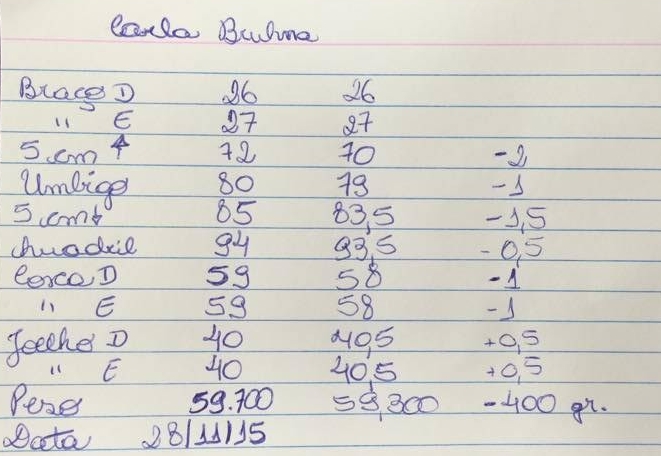 Carla Bruhma
Braço D 26 26
" E 27 27
5 cm ↑ 72 70 -2
Umbigo 80 79 -1
5 cm ↓ 85 83,5 -1,5
Quadril 94 93,5 -0,5
Coxa D 59 58 -1
" E 59 58 -1
Joelho D 40 40,5 +0,5
" E 40 40,5 +0,5
Peso 59.700 59,300 -400 gr.
Data 28/11/15